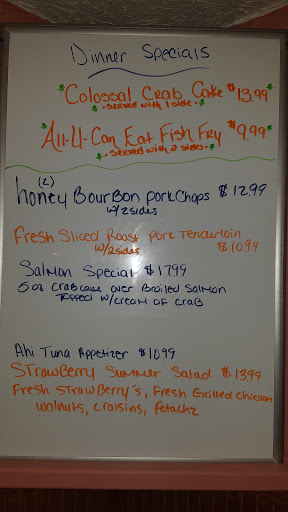 Dinner Specials
Colossal Crab Cake $13.99
- Served with 1 side -
All-U-Can Eat Fish Fry $9.99
- Served with 2 sides -
(2)
honey BourBon pork Chops $12.99
w/2sides
Fresh Sliced Roast Pork Tenderloin
w/2sides $10.99
Salmon Special $17.99
5 oz crabcake over Broiled Salmon
Topped w/cream of craB
Ahi Tuna Appetizer $10.99
STrawBerry Summer Salad $13.99
Fresh STrawBerry's, Fresh Grilled Chicken
walnuts, craisins, fetachz